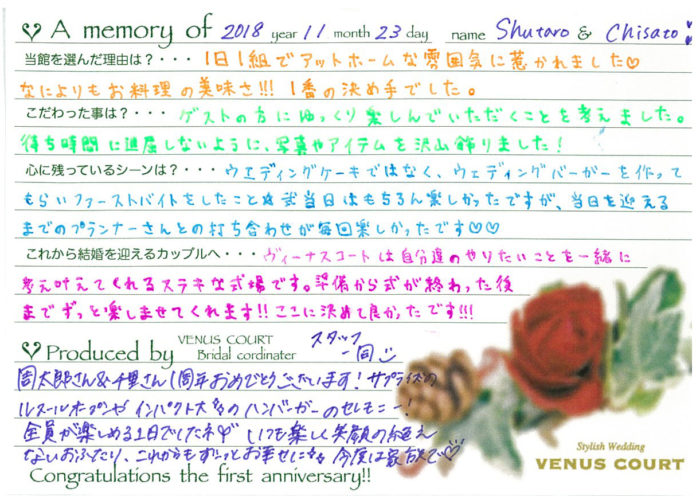 ♡ A memory of 2018 year 11 month 23 day name Shutaro & Chisato
当館を選んだ理由は？・・・1日1組でアットホームな雰囲気に惹かれました♡
なによりもお料理の美味さ!!! 1番の決め手でした。
こだわった事は？・・・ゲストの方にゆっくり楽しんでいただくことを考えました。
待ち時間に退屈しないように、写真やアイテムを沢山飾りました！
心に残っているシーンは？・・・ウエディングケーキではなく、ウェディングバーガーを作って
もらいファーストバイトをしたこと☆式当日はもちろん楽しかったですが、当日を迎える
までのプランナーさんとの打ち合わせが毎回楽しかったです♡♡
これから結婚を迎えるカップルへ・・・ヴィーナスコートは自分達のやりたいことを一緒に
考え叶えてくれるステキな式場です。準備から式が終わった後
までずっと楽しませてくれます!! ここに決めて良かったです!!!
♡ Produced by VENUS COURT Bridal cordinater スタッフ一同
周太郎さん&千里さん1周年おめでとうございます！サプライズの
インパクト大のハンバーガーのセレモニー！
全員が楽しめる1日でしたネ♡ いつも楽しく笑顔の絶え
ないおふたり、これからもずーっとお幸せに 今度は家族で♡
Congratulations the first anniversary!!
Stylish Wedding
VENUS COURT